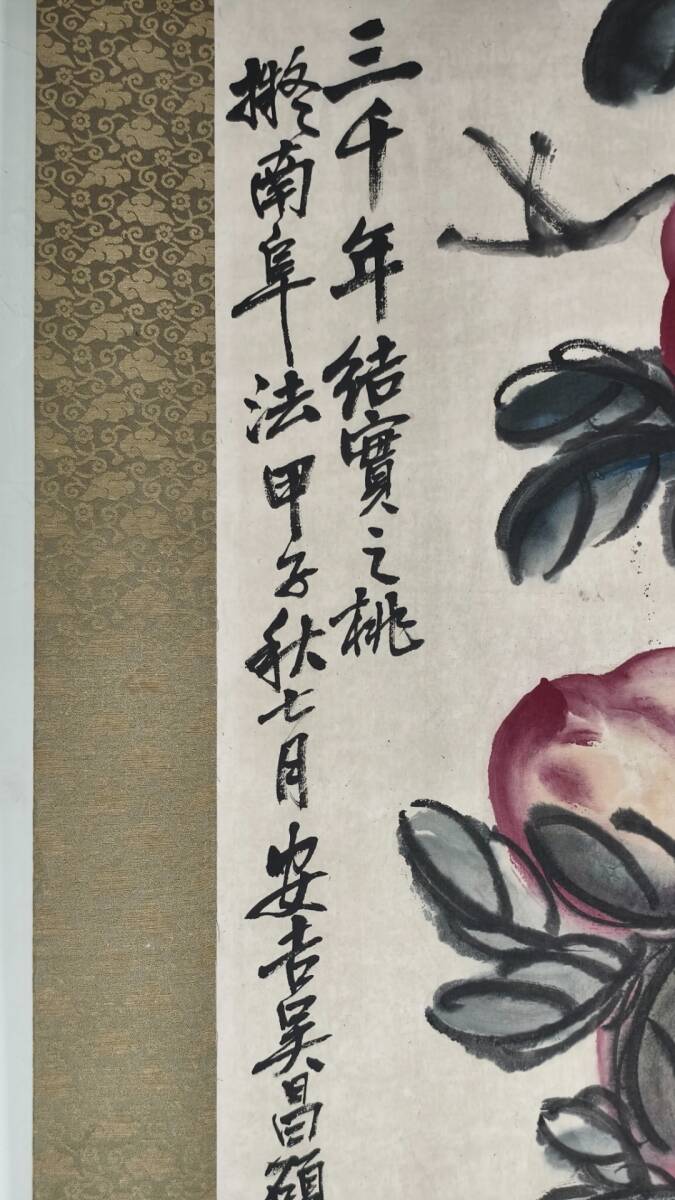 三千年結實之桃
擬南阜法甲子秋七月安吉吳昌碩